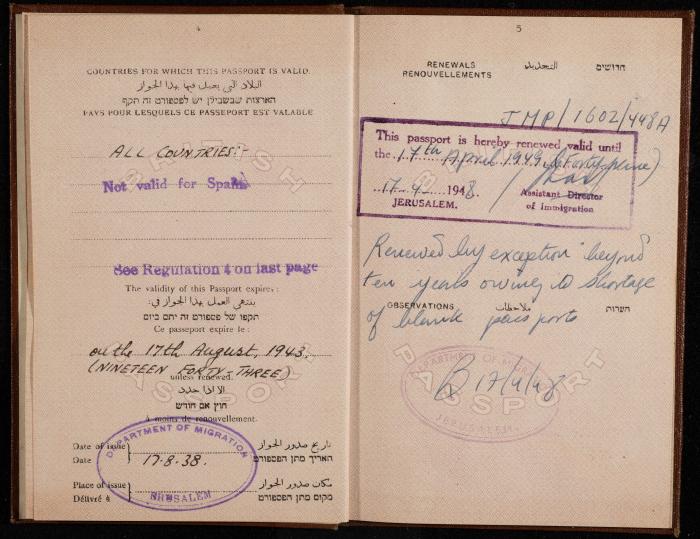 4
COUNTRIES FOR WHICH THIS PASSPORT IS VALID.
البلاد التي يعمل فيها بهذا الجواز
הארצות שבשבילן יש לפספורט זה תקף
PAYS POUR LESQUELS CE PASSEPORT EST VALABLE
ALL COUNTRIES:-
Not valid for Spain
See Regulation 4 on last page
The validity of this Passport expires:
ينتهي العمل بهذا الجواز في:
תקפו של פספורט זה יתם ביום
Ce passeport expire le:
on the 17th August, 1943.
(NINETEEN FORTY-THREE)
unless renewed.
الا اذا جدد
חוץ אם חודש
à moins de renouvellement.
Date of issue
تاريخ صدور الجواز
Date
האריך מתן הפספורט
17.8.38.
DEPARTMENT OF MIGRATION
JERUSALEM
Place of issue
مكان صدور الجواز
Délivré à
מקום מתן הפספורט
5
RENEWALS
التجديد
חדושים
RENOUVELLEMENTS
JMP/1602/448A
This passport is hereby renewed valid until
the 17th April 1949 (Forty-nine)
17-4- 1948
Assistant Director
JERUSALEM.
of Immigration
Renewed by exception beyond
ten years owing to shortage
OBSERVATIONS
ملاحظات
הערות
of blank passports
DEPARTMENT OF MIGRATION
PASSPORT
17/4/48
JERUSALEM